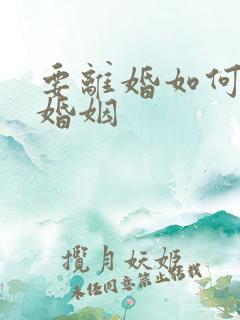 要離婚如何
婚姻
攬月妖姬
未任同意禁止轉載